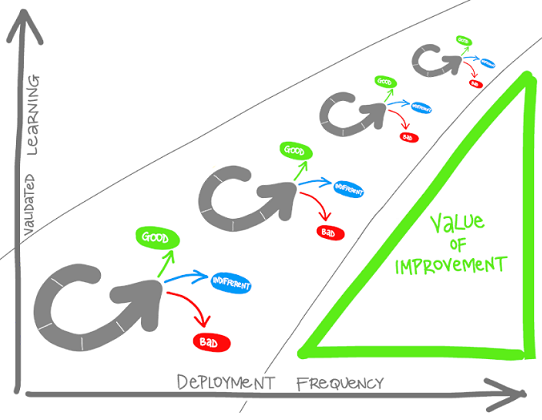 VALIDATED LEARNING
GOOD
INDIFFERENT
BAD
GOOD
INDIFFERENT
BAD
GOOD
INDIFFERENT
BAD
GOOD
INDIFFERENT
BAD
VALUE
OF
IMPROVEMENT
DEPLOYMENT FREQUENCY